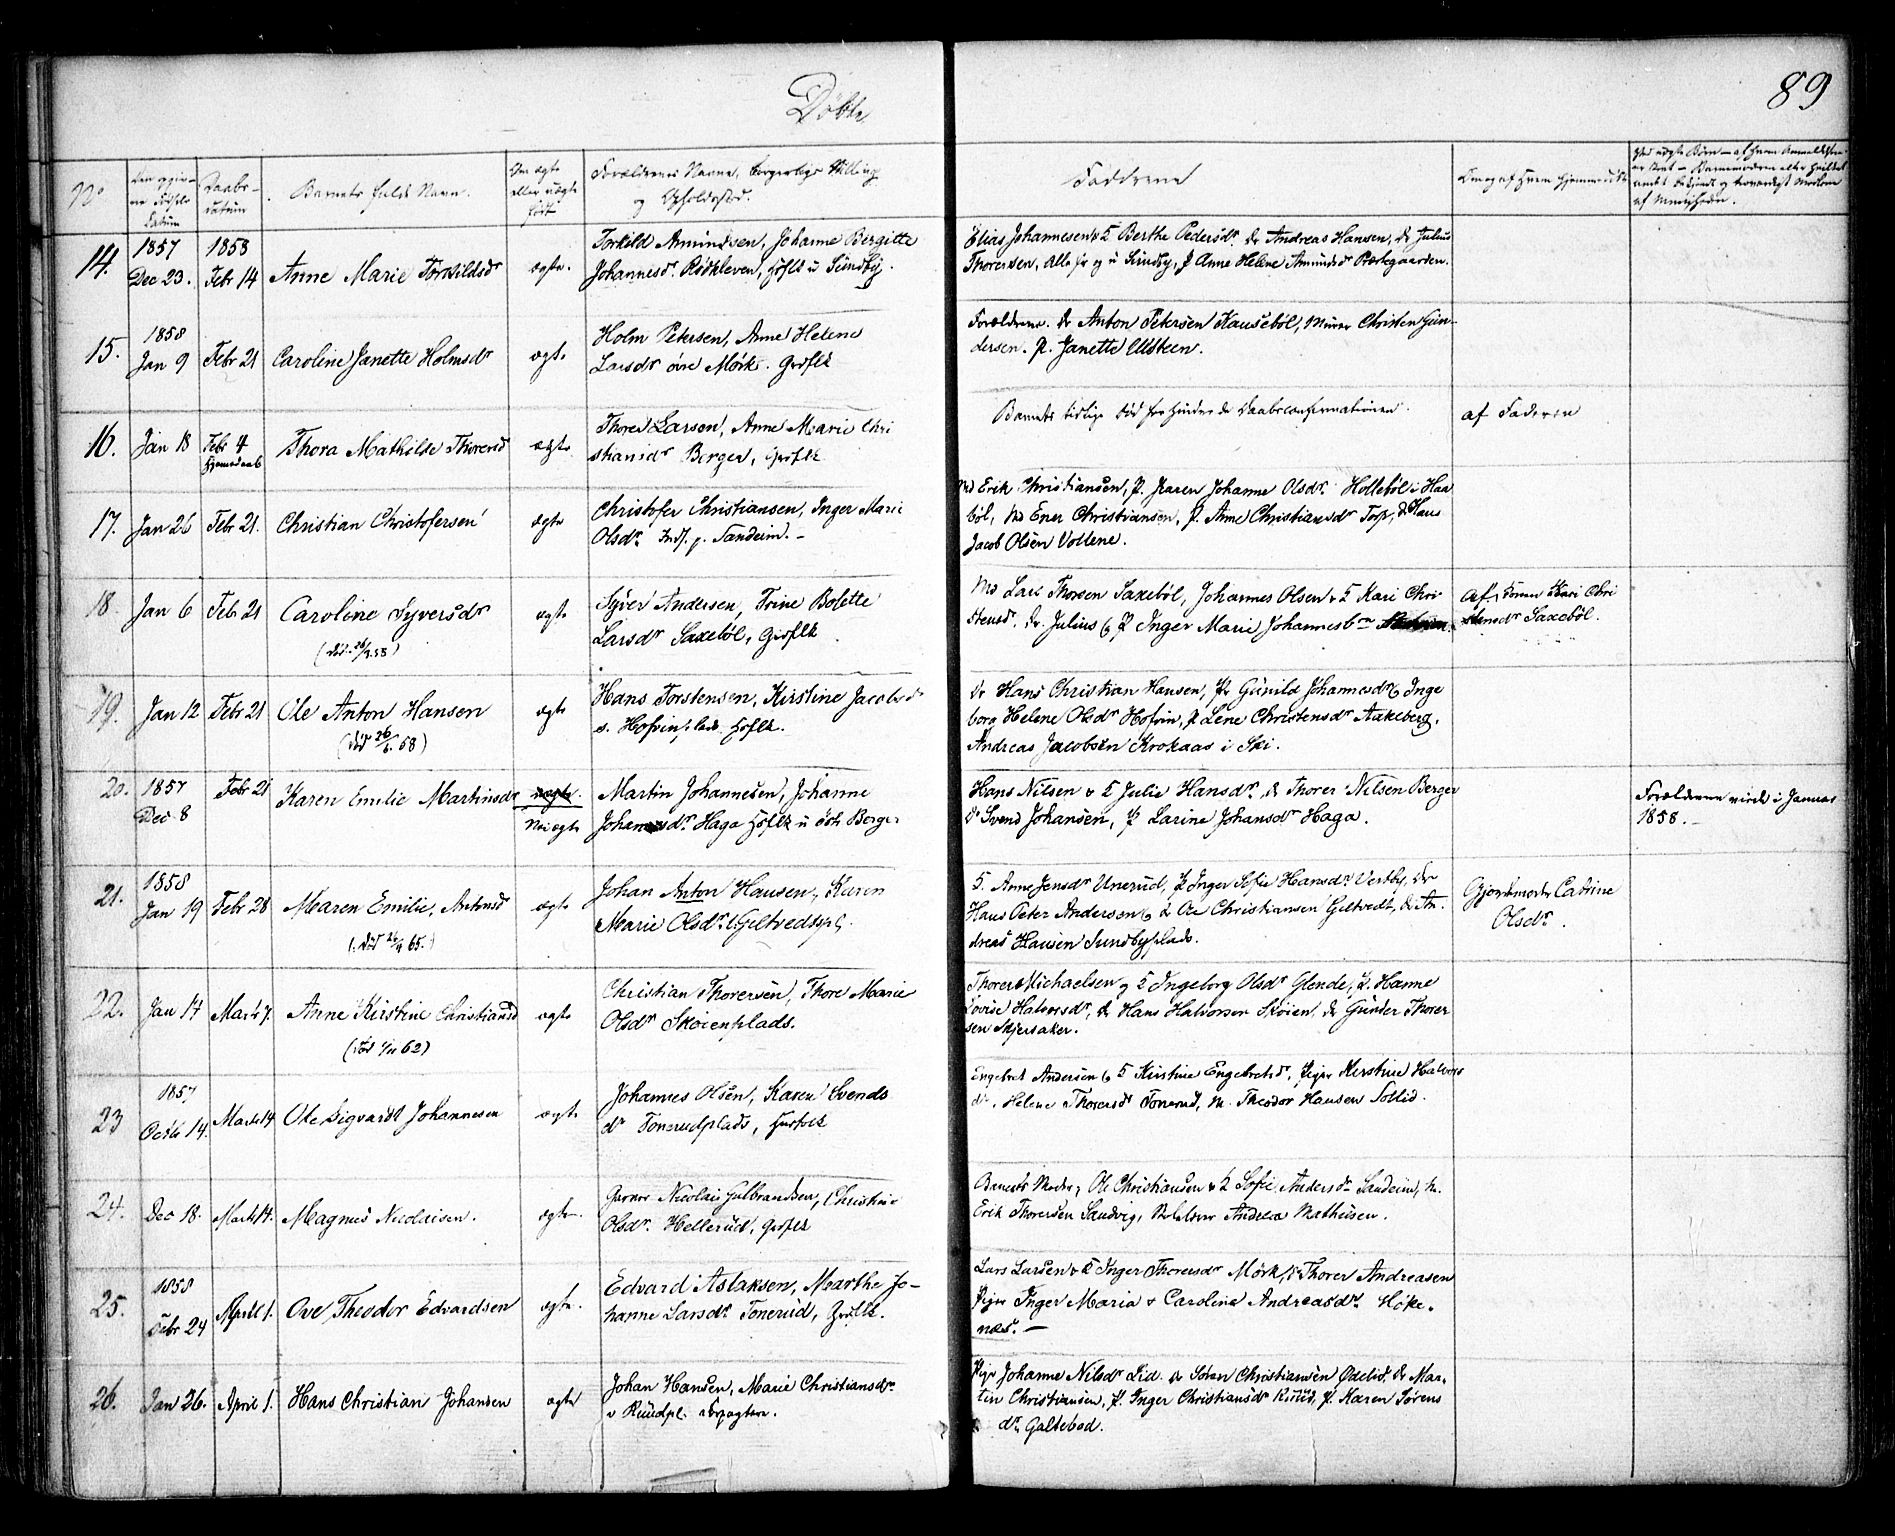 Døbte
89
No
Den opgivne Fødsels Datum
Daabsdatum
Barnets fulde Navn.
Om ægte eller uægte født
Forældrenes Navne, borgerlige Stilling og Opholdssted.
Faddrene
Om og af hvem hjemmedøbt
14.
1857
Dec 23.
1858
Febr 14
Anne Marie Torkildsdr
ægte.
Torkild Amundsen, Johanne Bergitte
Johannesdr Rødkleven, Hsflk u Sundby.
Elias Johannesen & K Berthe Pedersdr Dr Andreas Hansen, Dr Julius
Thoresen, alle fr og u Sundby, P Anne Helene Amundsdr Præstegaarden.
15.
1858
Jan 9
Febr 21
Caroline Janette Holmsdr
ægte
Holm Petersen, Anne Helene
Larsdr øvre Mørk. Grdflk
Forældrene. Dr Anton Petersen Kausebøl, Murer Christen Gun-
dersen. P. Janette Ulsteen.
16.
Jan 18
Febr 4
Hjemmedaab
Thora Mathilde Thoresd
ægte
Thore Larsen, Anne Marie Chri
stiansdr Berger, Grdflk
Barnets tidlige Død forhindrede Daabsconfirmationen.
af Faderen
17.
Jan 26
Febr 21.
Christian Christofersen
ægte
Christofer Christiansen, Inger Marie
Olsdr Inds. p. Sandeim. -
Md Erik Christiansen, P. Karen Johanne Olsdr Hollebøl i Haa
bøl, Md Ener Christiansen, P. Anne Christiansdr Torp, Dr Hans
Jacob Olsen Vollene.
18.
Jan 6
Feb. 21
Caroline Syversdr
ægte
Syver Andersen, Trine Bolette
Larsdr Saxebøl, Grdflk
Md Lars Thorsen Saxebøl, Johannes Olsen & K Kari Chri
stensdr, Dr. Julius & P Inger Marie Johannesbrn
af Konen Kari Chri
stensdr Saxebøl.
19.
Jan 12
Febr 21
Ole Anton Hansen
(død 26/6 58)
ægte
Hans Torstensen, Kirstine Jacobsd
s. Hofvinplads. Hsflk.
Dr Hans Christian Hansen, P Gunild Johannesdr & Inge
borg Helene Olsdr Hofvin, P Lene Christensdr Aakeberg,
Andreas Jacobsen Krokaas i Ski.
20.
1857
Dec 8
Febr 21
Karen Emilie Martinsdr
uægte
Martin Johannesen, Johanne
Johansdr Haga Hsflk u østr Berger
Hans Nilsen & K Julie Hansdr, Dr Thorer Nilsen Berger
Dr Svend Johansen, P Larine Johansdr Haga.
Forældrene viede i Januar
1858. -
21.
1858
Jan 19
Febr 28
Maren Emilie, Antonsd
ægte
Johan Anton Hansen, Karen
Marie Olsdr Giltvedtspl.
K. Anne Jensdr Unerud, P Inger Sofie Hansdr Vestby, Dr
Hans Peter Andersen & Dr Ole Christiansen Giltvedt, Dr An
dreas Hansen Sundbyplads.
Gjordemoder Catrine
Olsdr.
22.
Jan 17
Marts 7.
Anne Kirstine Christiansd
ægte
Christian Thorersen, Thore Marie
Olsdr Skøienplads.
Thorer Michaelsen og K Ingeborg Olsdr Glende, P. Hanne
Lovise Halvorsdr, Dr Hans Halvorsen Skøien, Dr Gunder Thorer
sen Skjersaker.
23
1857
Octb 14.
Marts 14
Ole Sigvardt Johannesen
ægte
Johannes Olsen, Karen Svends
dr Tonerudplads, Husfolk
Engebret Andersen & K Kirstine Engebretsd, Pige Kirstine Halvors
dr, Helene Thorersdr Tonerud, M. Theodor Hansen Sollid.
24.
Dec 18.
Marts 14.
Magnus Nicolaisen.
ægte
Garver Nicolai Gulbrandsen, Christine
Olsdr Hellerud, Grdflk
Barnets Moder, Ole Christiansen & K Sofie Andersdr Sandeim, M.
Erik Thorersen Sandvig, Andrea Mathiesen.
25.
1858
Febr 24
April 1.
Ove Theodor Edvardsen
ægte.
Edvard Aslaksen, Marthe Jo-
hanne Larsdr Tonerud, Grdflk.
Lars Larsen & K Inger Thoresdr Mørk, Dr Thorer Andreasen
Piger Inger Maria & Caroline Andreasdr Høke-
næs. -
26.
Jan 26.
April 1.
Hans Christian Johansen
ægte
Johan Hansen, Marie Christiansdr
v Rundpl. Forpagtere.
Pige Johanne Nilsdr Lid. Dr Søren Christiansen Ødelid, Dr Mar-
tin Christiansen, P. Inger Christiansdr Rustad, P. Karen Sørens
dr Galtebod.